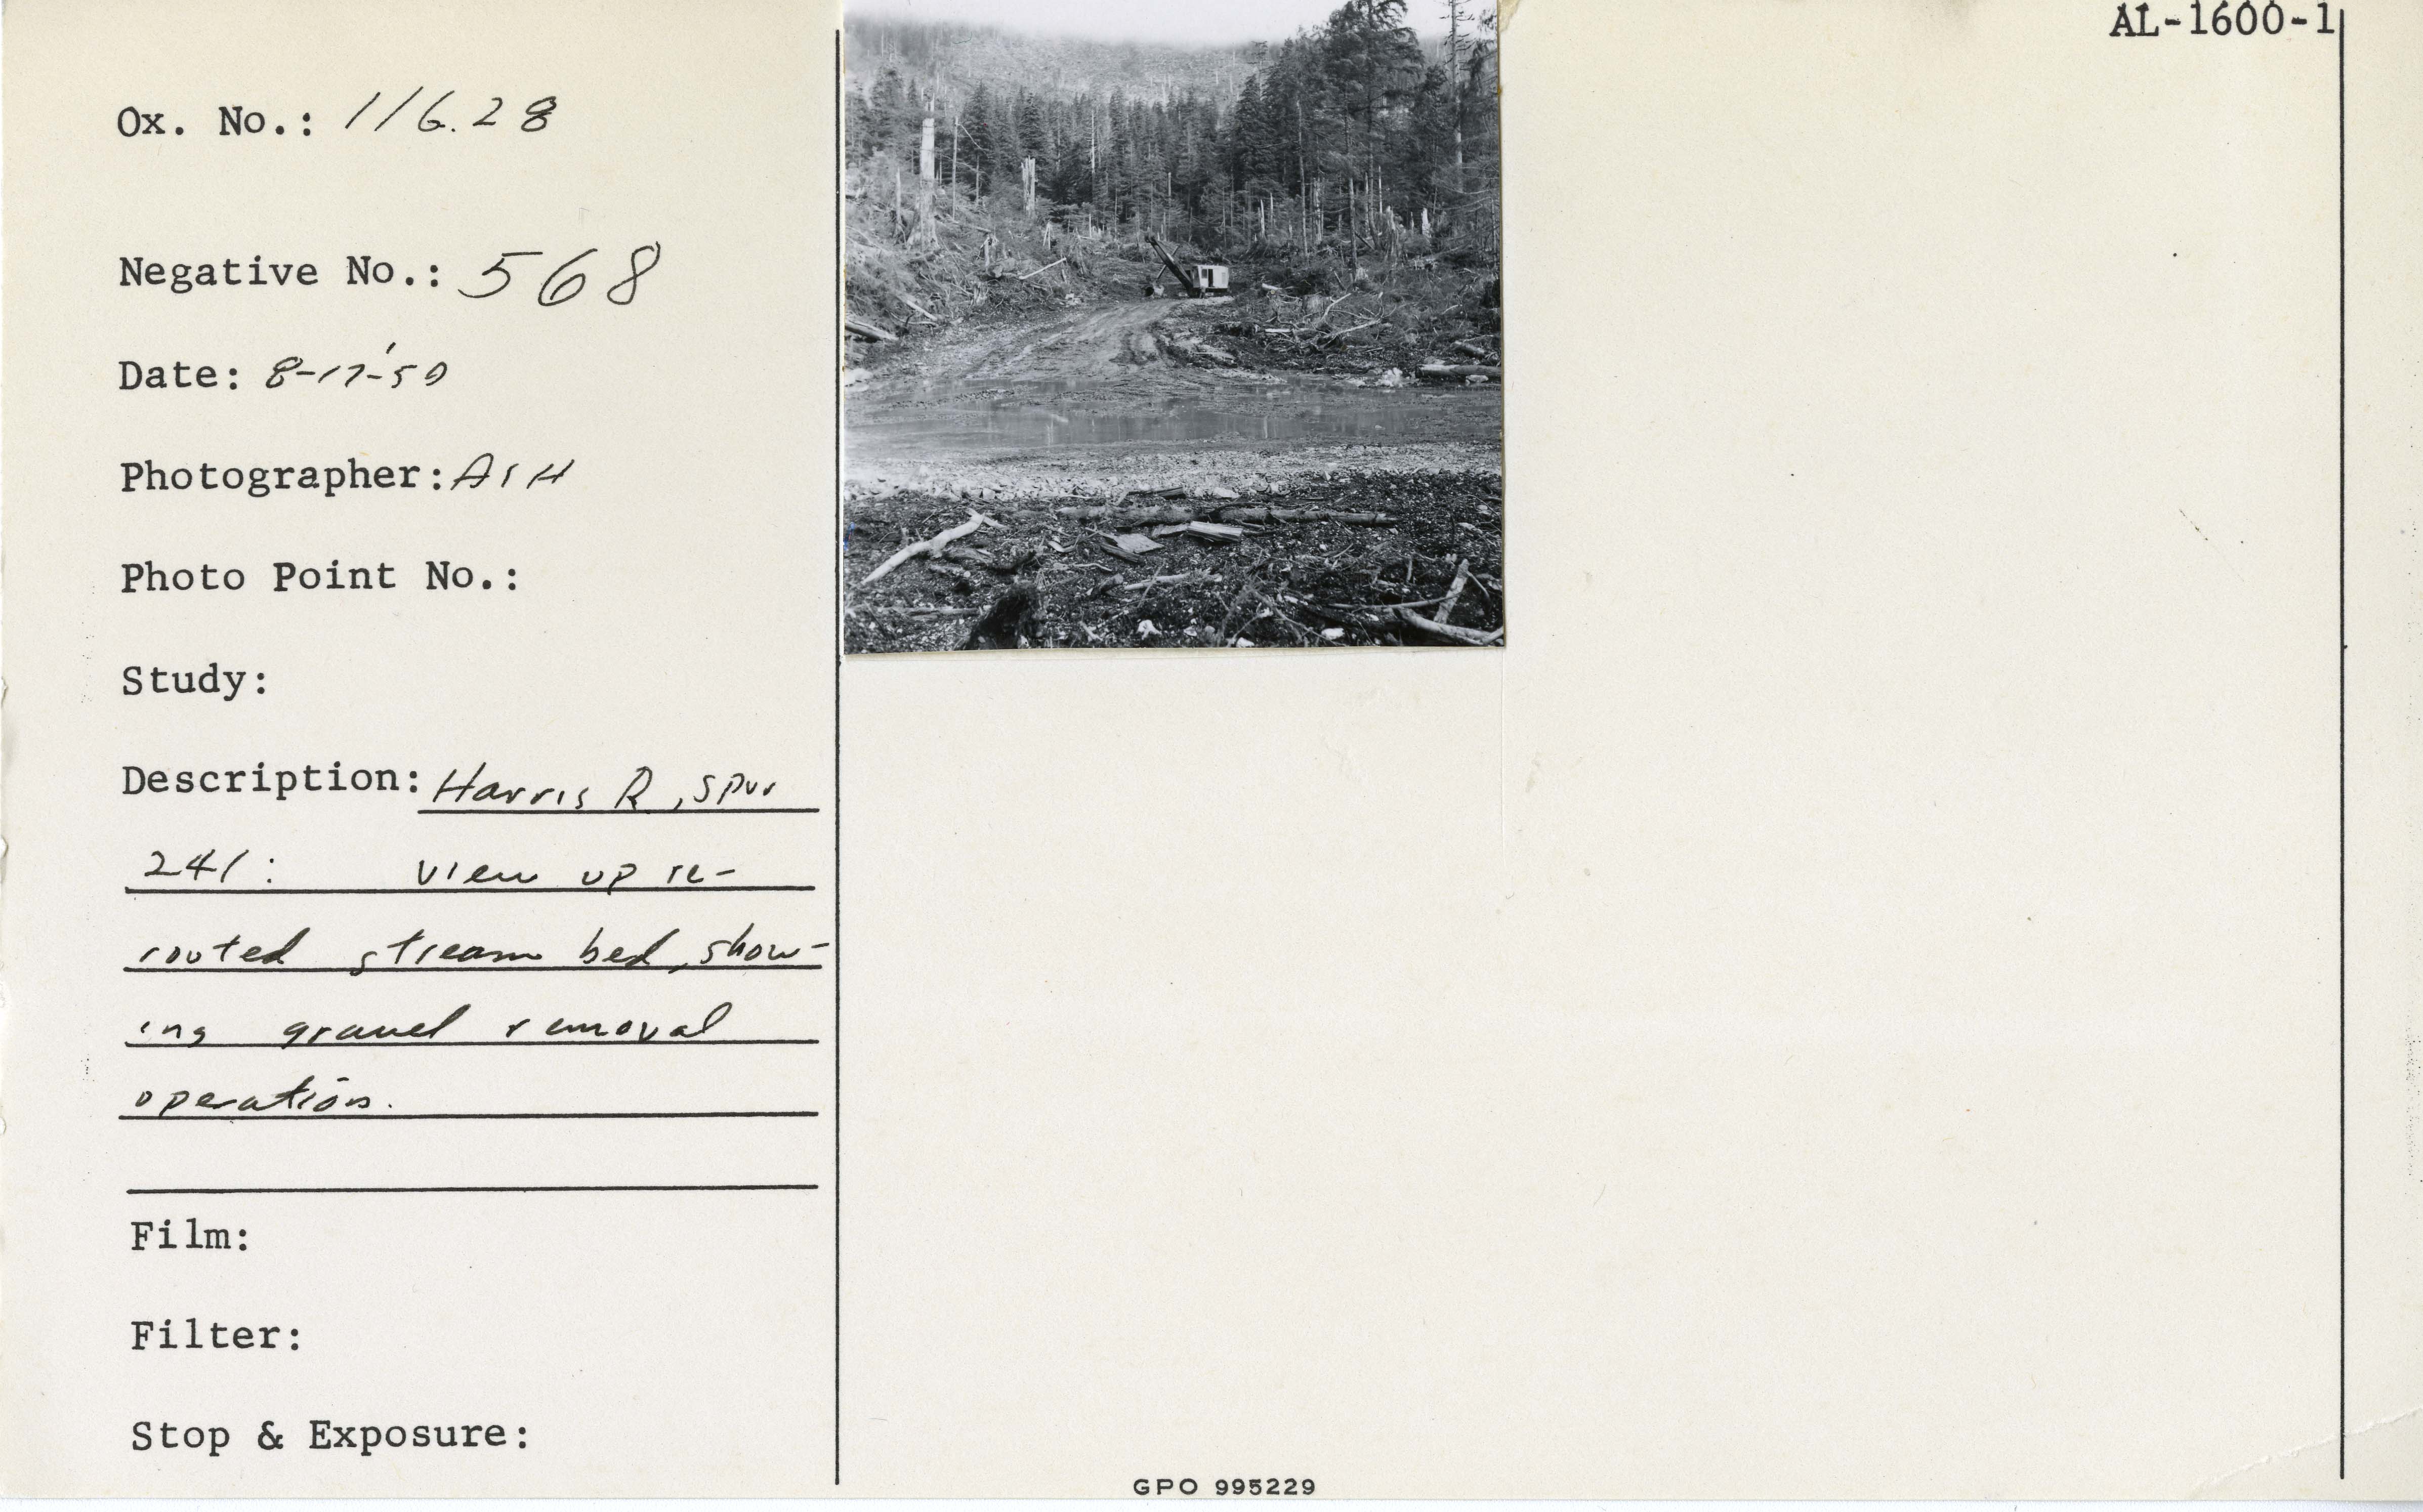 AL-1600-1
Ox. No.: 116.28
Negative No.: 568
Date: 8-17-'59
Photographer:
Photo Point No.:
Study:
Description: Harris R, spur
241: view up re-
routed stream bed, show-
ing gravel removal
operation.
Film:
Filter:
Stop & Exposure:
GPO 995229